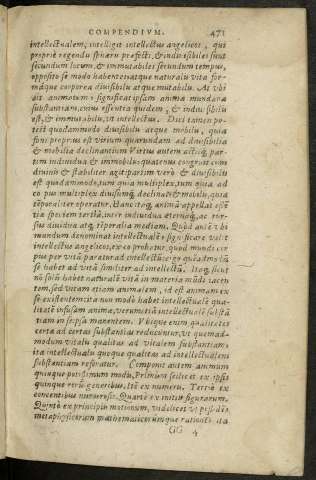 COMPENDIVM. 471
intellectualem, intelligit intellectus angelicos, qui
proprie regendis sphæris præfecti, & indiuisibiles sunt
secundum locum, & immutabiles secundum tempus,
opposito se modo habent eisatque naturalis vita for-
máque corporea diuisibilis atque mutabilis. At vbi
ait animorum: significat ipsam animæ mundanæ
substantiam, cuius essentia quidem, & indiuisibilis
est, & immutabilis, vt intellectus. Dici tamen po-
test quodammodo diuisibilis atque mobilis, quia
fons proprius est virium quarundam ad diuisibilia
& mobilia declinantium Virtus autem actióq; par-
tim indiuidua & immobilis: quatenus congruit cum
diuinis & stabiliter agit: partim verò & diuisibilis
est quodammodo, tum quia multiplex, tum quia ad
corpus multiplex diuisumq́; declinat & mobilis, quia
tẽporaliter operatur. Danc itaq; animã appellat essẽ-
tia speciem tertiã, inter indiuidua æternáq́;, ac rur-
sus diuidua atq; tẽporalia mediam. Quòd autẽ vbi
mundum denominat intellectualẽ, significare velit
intellectus angelicos, ex eo probatur, quòd mundi cor
pus per vitã paratur ad intellectũ: ergo quasi mũdus
se habet ad vitã similiter ad intellectũ. Itaq; sicut
nõ solũ habet naturalẽ vitã in materia mũdi iacen
tem, sed vitam etiam animalem, id est animam ex
se existentem: ita non modò habet intellectualẽ qua-
litatẽ infusam animæ, verumetiã intellectualẽ substã
tiam in seipsa manentem. Vbique enim qualitates
certæ ad certas substantias reducuntur, vt quemad-
modum vitalis qualitas ad vitalem substantiam,
ita intellectualis quoque qualitas ad intellectualem
substantiam referatur. Componit autem animum
quinque potissimum modis, Primùm scilicet ex ipsis
quinque rerũ generibus. Itẽ ex numeris. Tertiò ex
concentibus numerosis. Quartò ex initijs figurarum.
Quintò ex principijs motionum, videlicet vt possidẽs
metaphysicorum mathematicorumque rationes ita
GG 4